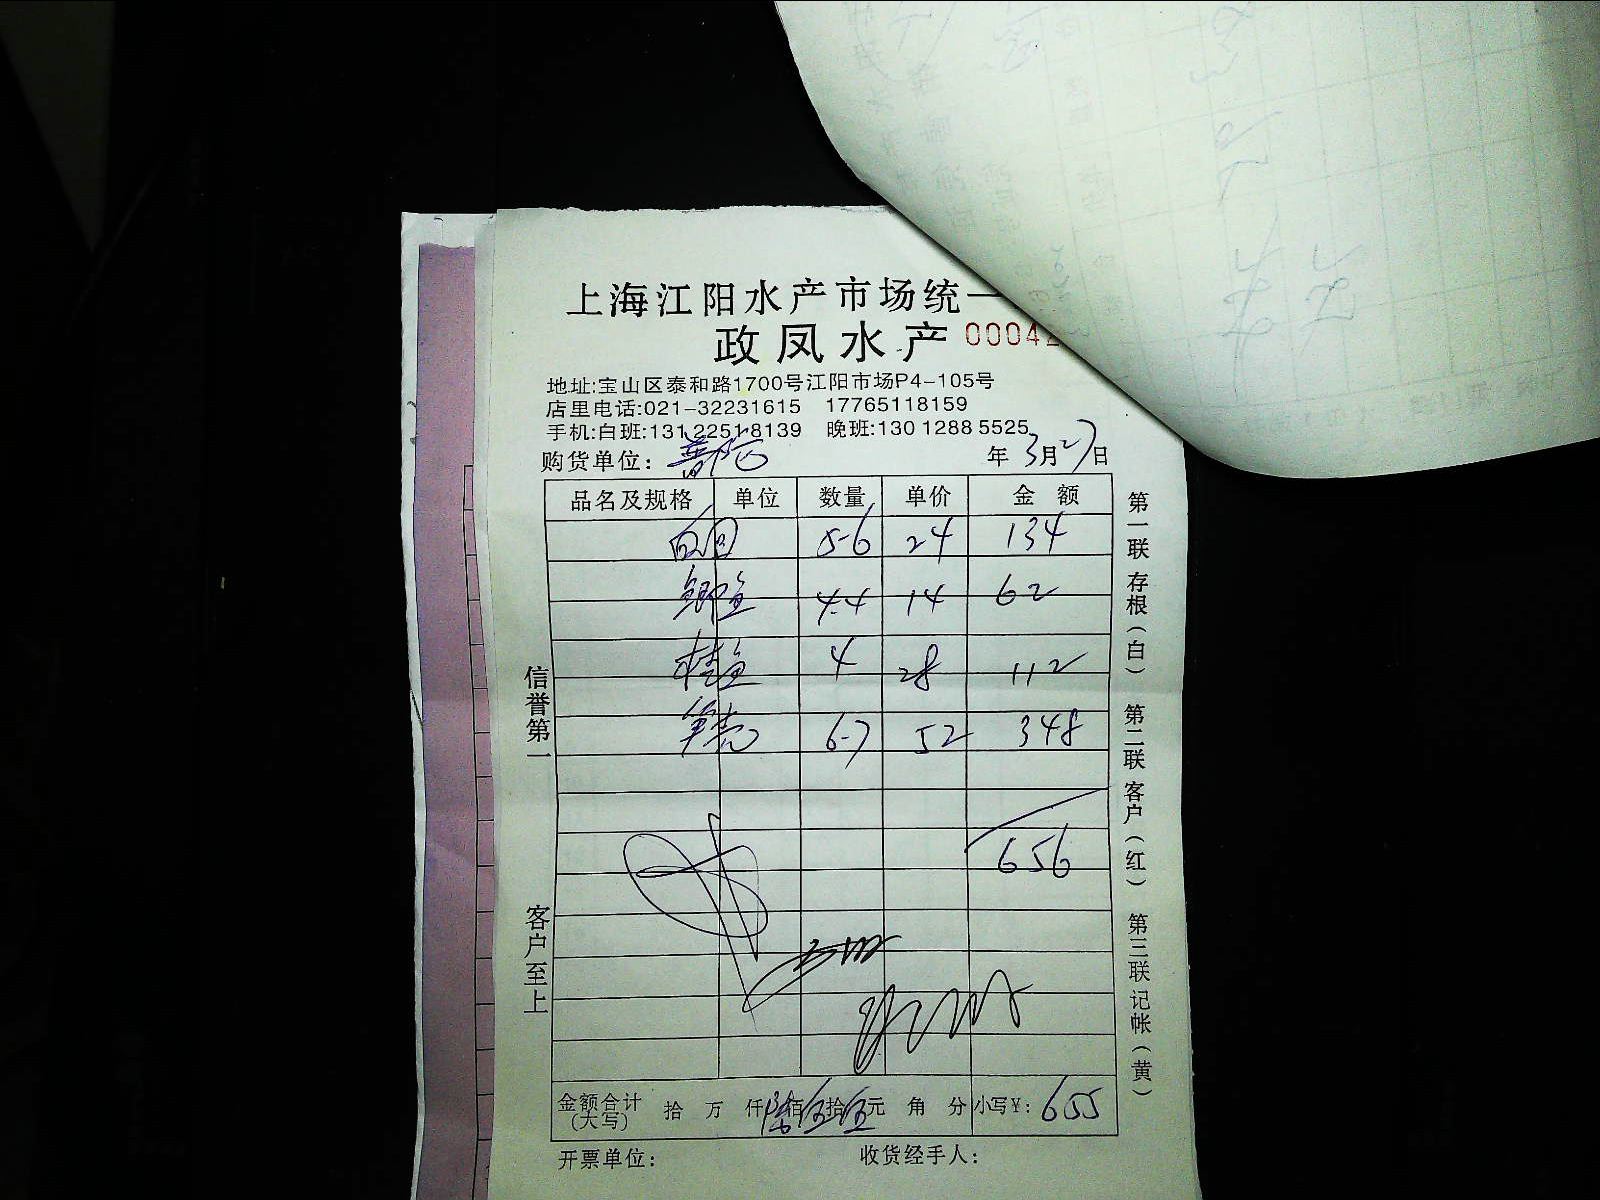 上海江阳水产市场统一
政凤水产 00042
地址:宝山区泰和路1700号江阳市场P4-105号
店里电话:021-32231615 17765118159
手机:白班:131 2251 8139 晚班:130 1288 5525
购货单位: 年 3月27日
品名及规格 单位 数量 单价 金 额
5-6 24 134
鲫鱼 4.4 14 62
桂鱼 4 28 112
笋壳 6-7 52 348
656
金额合计(大写) 拾 万 仟 陆佰伍拾伍元 角 分 小写¥: 655
开票单位: 收货经手人:
信誉第一
客户至上
第一联 存根(白) 第二联 客户(红) 第三联 记帐(黄)